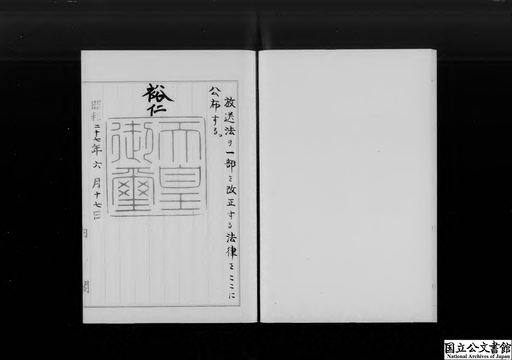 放送法の一部を改正する法律をここに
公布する。
裕仁
天皇
御璽
昭和二十七年六月十七日
国立公文書館
National Archives of Japan